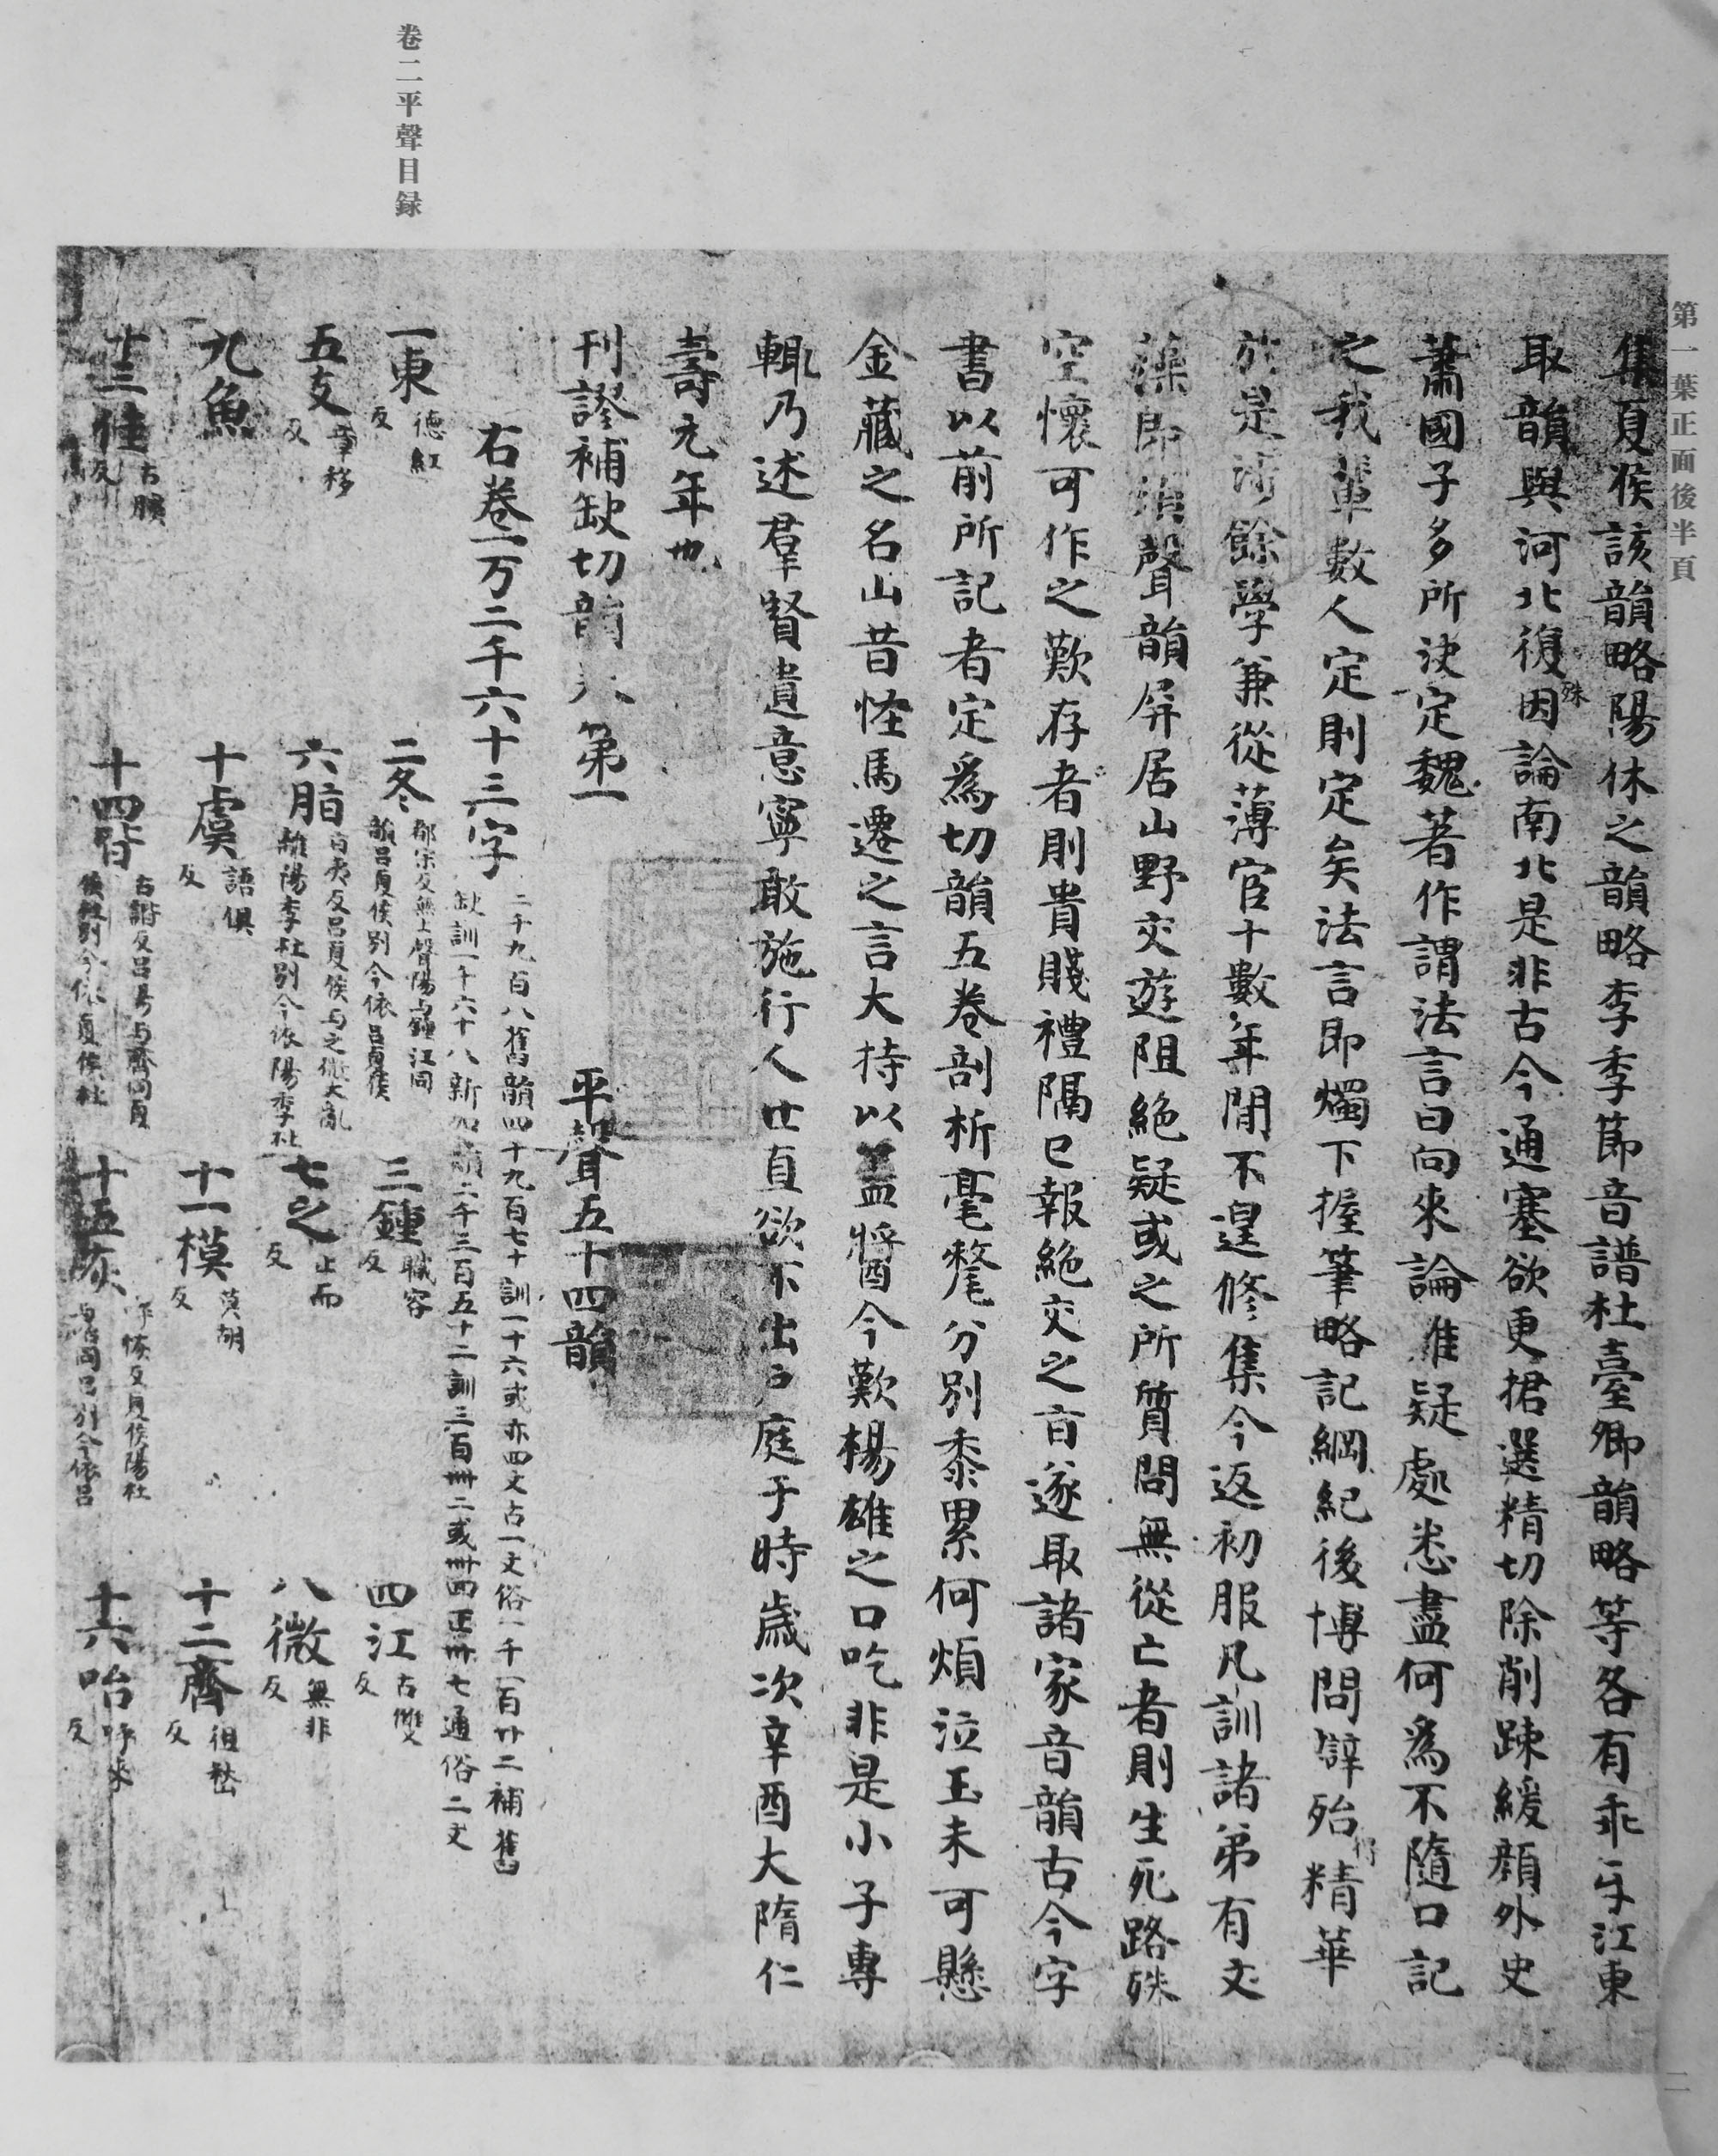 第一葉正面後半頁
集夏侯該韻略陽休之韻略李季節音譜杜臺卿韻略等各有乖互江東
取韻與河北復殊因論南北是非古今通塞欲更捃選精切除削疎緩顔外史
蕭國子多所決定魏著作謂法言曰向來論難疑處悉盡何爲不隨口記
之我輩數人定則定矣法言即燭下握筆略記綱紀後博問辯殆得精華
於是涉餘學兼從薄宦十數年閒不遑修集今返初服凡訓諸弟有文
藻即須聲韻屏居山野交遊阻絶疑或之所質問無從亡者則生死路殊
空懷可作之歎存者則貴賤禮隔已報絶交之旨遂取諸家音韻古今字
書以前所記者定爲切韻五卷剖析毫氂分別黍累何煩泣玉未可懸
金藏之名山昔怪馬遷之言大持以蓋醬今歎楊雄之口吃非是小子專
輒乃述羣賢遺意寧敢施行人世直欲不出戶庭于時歲次辛酉大隋仁
壽元年也
刊謬補缺切韻 第一 平聲五十四韻
右卷一万二千六十三字 二千九百八舊韻四十九百七十訓一十六或亦四文古一文俗一千一百廿二補舊
缺訓一千六十八新加韻二千三百五十二訓三百卌二或卌四正卌七通俗二文
一東 德紅反 二冬 都宗反無上聲陽与鍾江同韻呂夏侯別今依呂夏侯 三鍾 職容反 四江 古雙反
五支 章移反 六脂 旨夷反呂夏侯与之微大亂雜陽李杜別今依陽李杜 七之 止而反 八微 無非反
九魚 十虞 語俱反 十一模 莫胡反 十二齊 徂嵇反
十三佳 古膎反 十四皆 古諧反呂陽与齊同夏侯杜別今依夏侯杜 十五灰 呼恢反夏侯陽杜与咍同呂別今依呂 十六咍 呼來反
卷二平聲目録
二